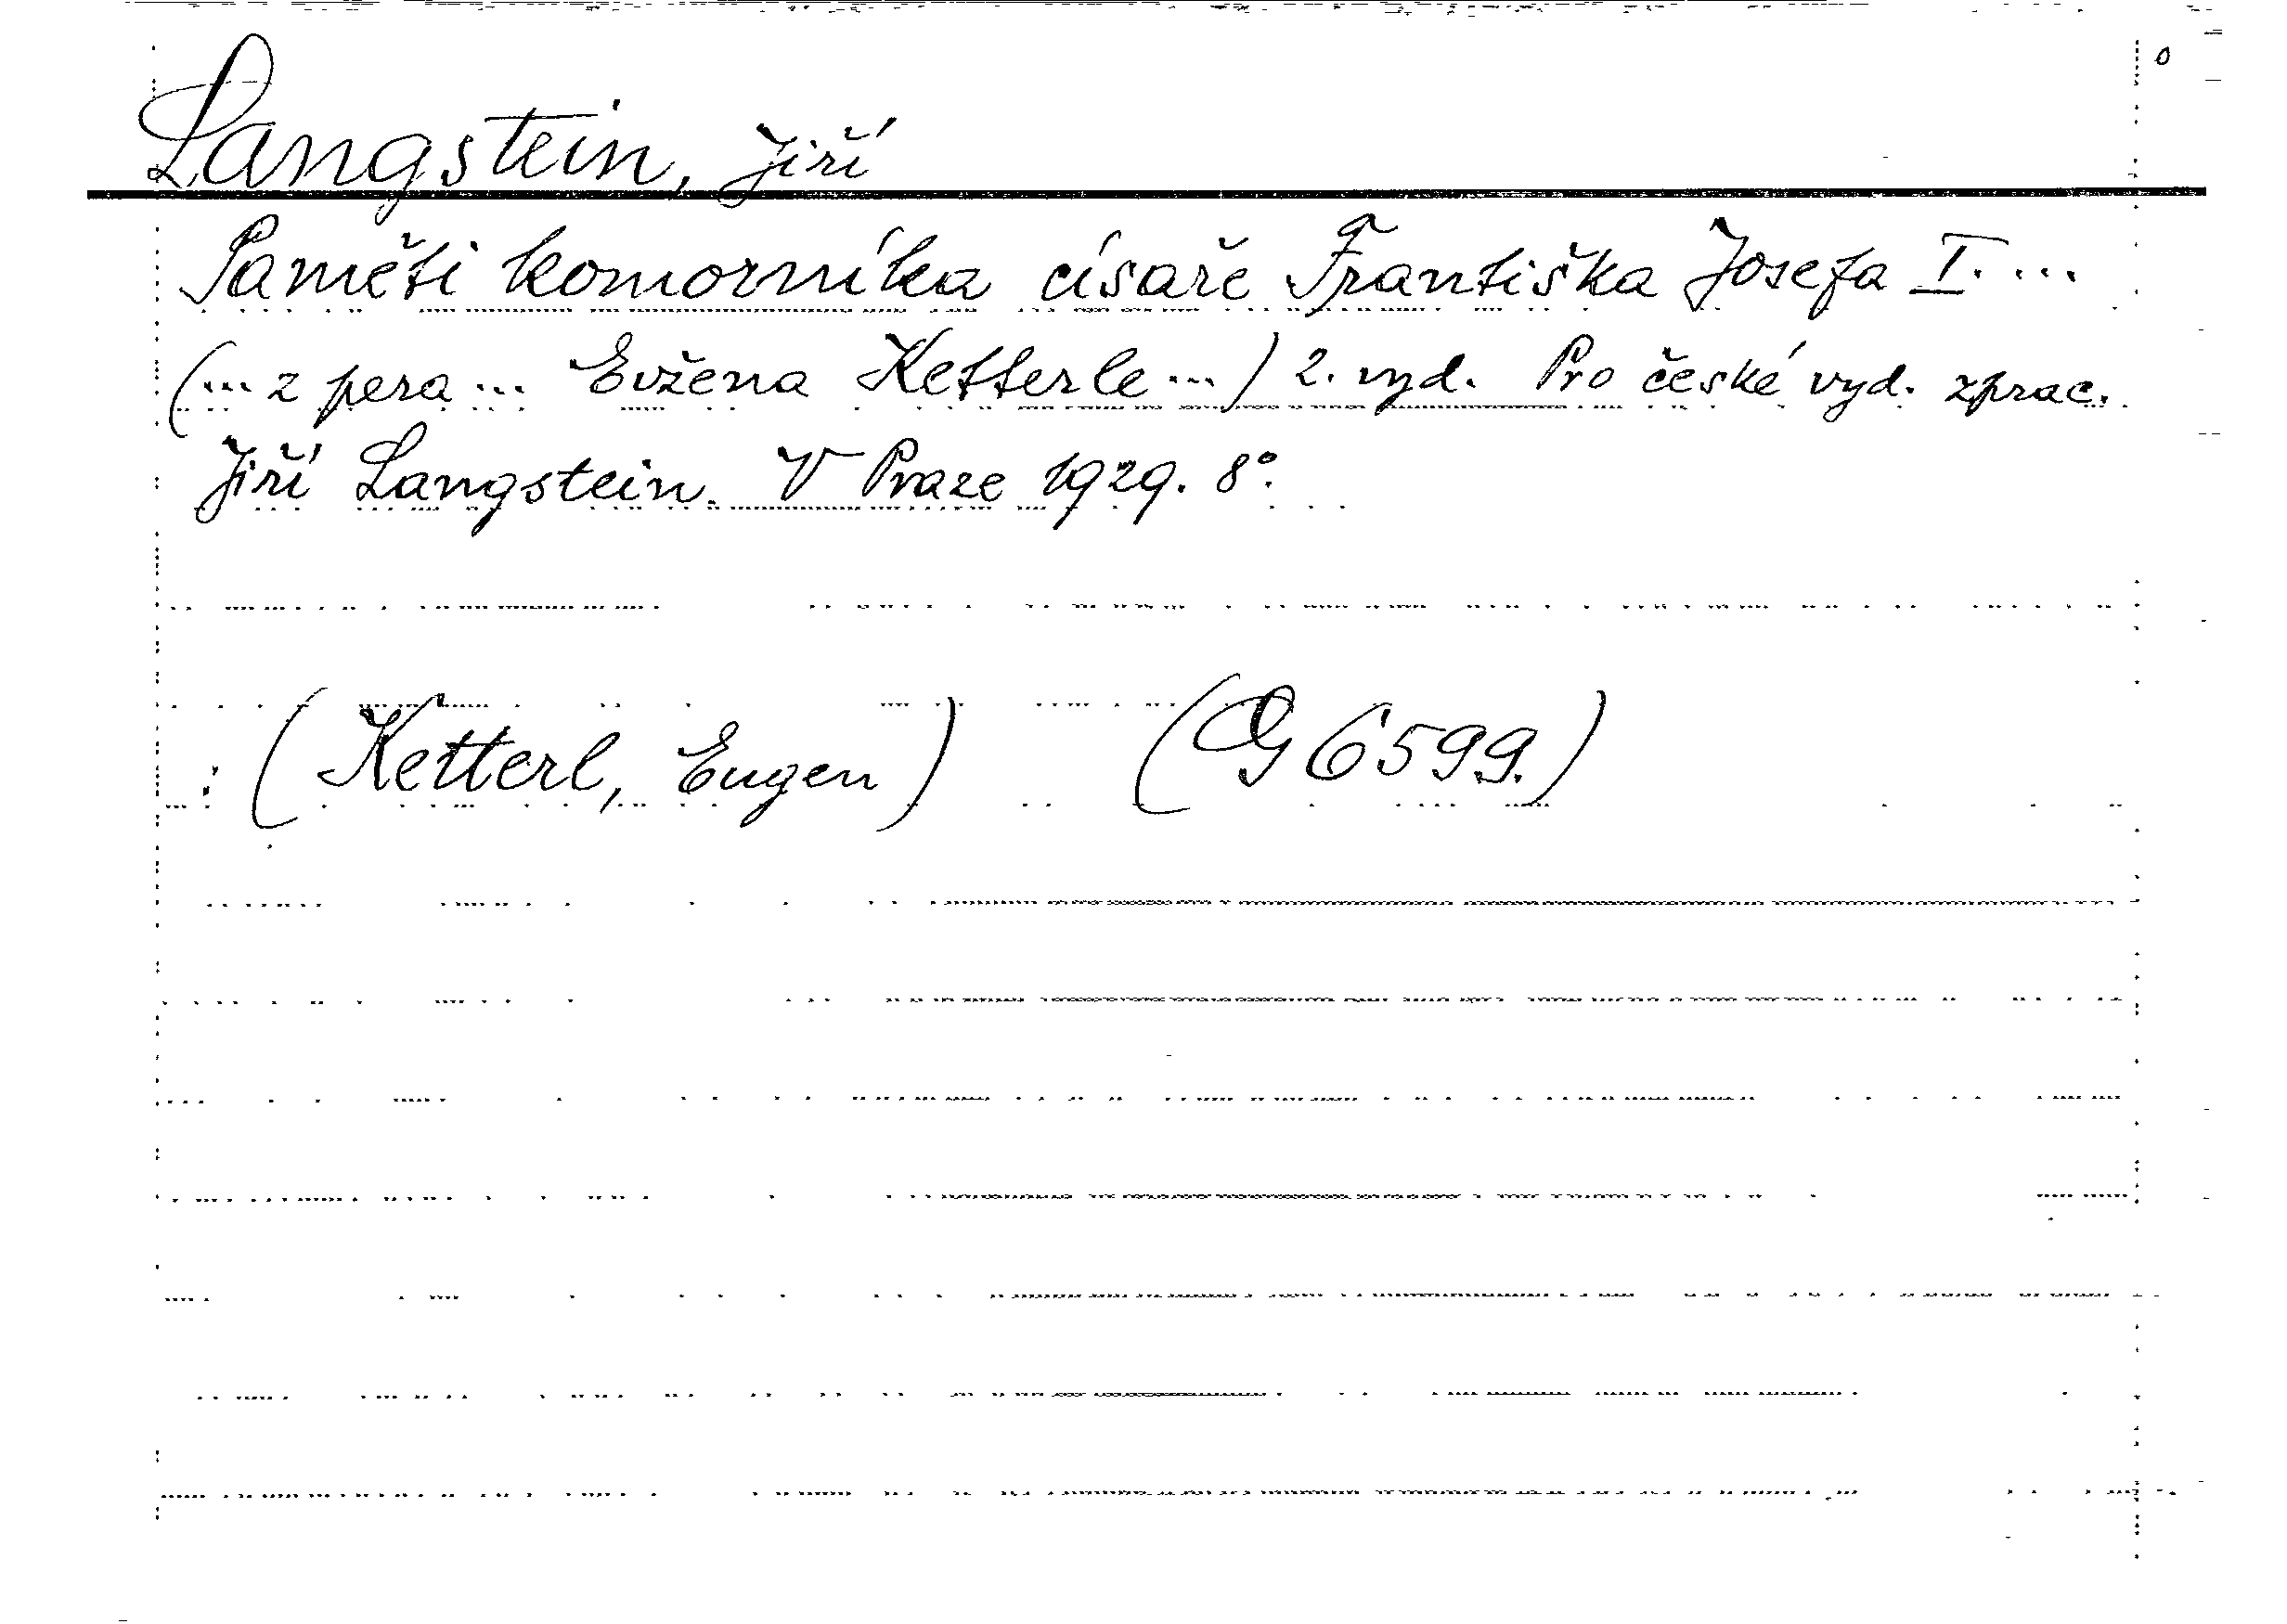 Langstein, Jiří
Paměti komorníka císaře Františka Josefa I. ...
(... z pera ... Evžena Ketterle ...) 2. vyd. Pro české vyd. zprac.
Jiří Langstein. V Praze 1929. 8°.
: (Ketterl, Eugen) (G 6599.)